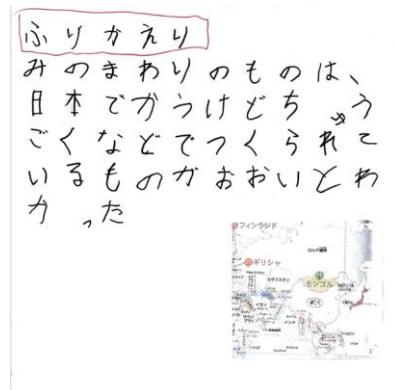 ふりかえり
みのまわりのものは、
日本でかうけどちゅう
ごくなどでつくられて
いるものがおおいとわ
かった
フィンランド
ギリシャ
モンゴル
インド